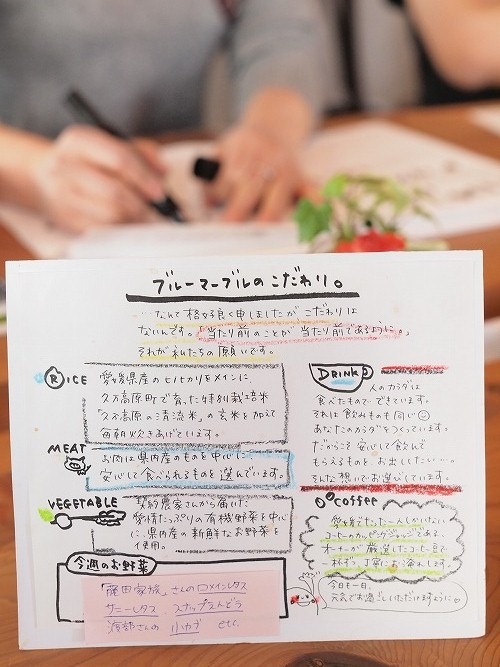 ブルーマーブルのこだわり。
…なんて格好良く申しましたがこだわりは
ないんです。「当たり前のことが当たり前であるように。」
それが私たちの願いです。
RICE
愛媛県産のヒノヒカリをメインに
久万高原町で育った特別栽培米
「久万高原の清流米」の玄米を加えて
毎朝炊きあげています。
MEAT
お肉は県内産のものを中心に
安心して食べられるものを選んでいます。
VEGETABLE
契約農家さんから届いた
愛情たっぷりの有機野菜を中心
に県内産の新鮮なお野菜を
使用。
今週のお野菜
「藤田家族」さんのロメインレタス
サニーレタス スナップえんどう
渡部さんの 小カブ etc.
DRINK
人のカラダは
食べたものでできています。
それは飲みものも同じ
あなたのカラダをつくっています。
だからこそ安心して飲んで
もらえるものを、お出ししたい…。
そんな想いでお選びしています。
coffee
愛媛でたった一人しかいない
コーヒーのカッピングジャッジである、
オーナーが厳選したコーヒー豆で
一杯ずつ丁寧にお淹れします。
今日も一日、
元気でお過ごしいただけますように